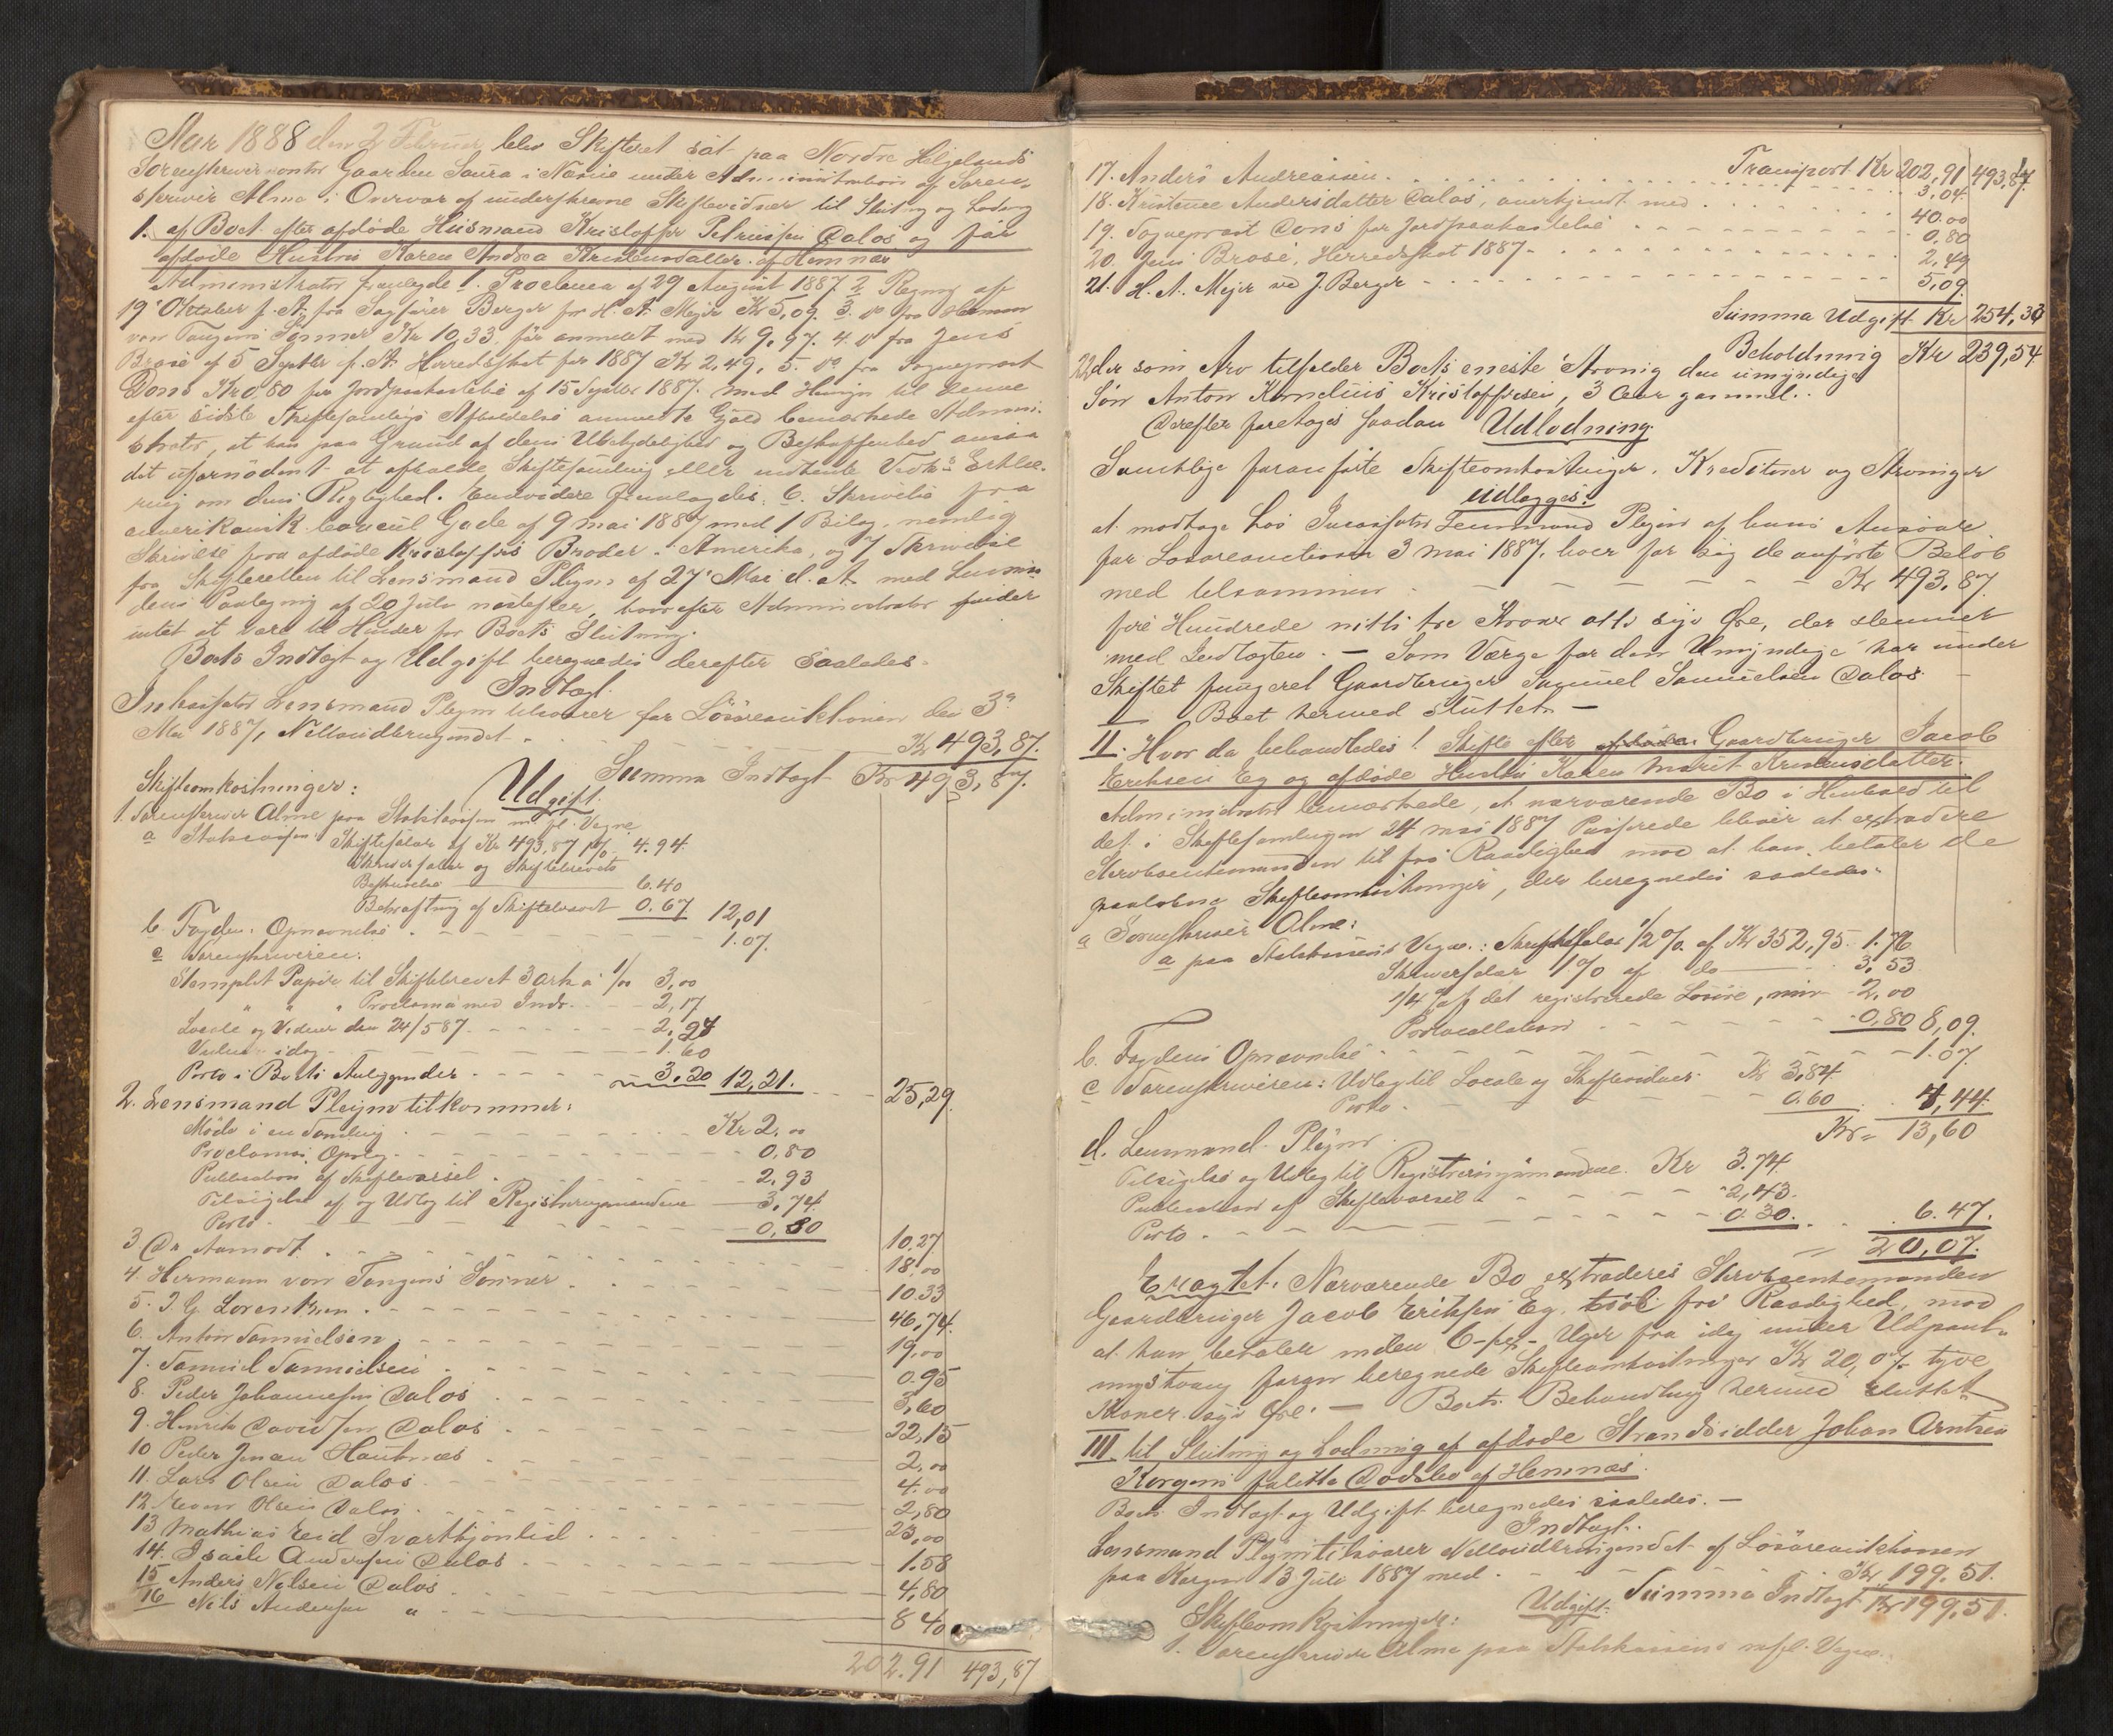 Aar 1888 den 2 Februar blev Skifteret sat paa Nordre Helgelands
Sorenskriverkontor Gaarden Saura i Næsne under Administration af Soren-
skriver Alme i Overvær af underskrevne Skiftevidner til Slutning og Lodning
1. af Boet efter afdøde Husmand Kristoffer Petersen Dalos og før
afdøde Hustru Karen Andrea Kristensdatter af Hemnæs
Administrator fremlagde 1. Proclama af 29 August 1887 2 Regning af
19 Oktober f. A. fra Sagfører Berger for H. A. Mejer Kr 5,09. 3. do fra Herman
von Tangens Sønner Kr 10,33, før anmeldt med Kr 9,97. 4. do fra Jens
Brose af 5 Septbr f. A. Herredsskat for 1887 Kr 2,49, 5. do fra Sogneprest
Dons Kr 0,80 for Jordpaakastelse af 15 Septbr 1887. Med Hensyn til denne
efter sidste Skiftesamlings Afholdelse anmeldte Gjæld bemærkede Admini-
strator, at han paa Grund af dens Ubetydelighed og Beskaffenhed ansaa
det ufornødent at afholde Skiftesamling eller indhente Vedk.s Erklæ-
ring om dens Rigtighed. Endvidere fremlagdes: 6. Skrivelse fra
amerikansk Consul Gade af 9 Mai 1887 med 1 Bilag, nemlig
Skrivelse fra afdøde Kristoffers Broder i Amerika, og 7 Skrivelse
fra Skifteretten til Lensmand Pleym af 27 Mai d. A. med Lensman-
dens Paategning af 20 Juli næstefter, hvorefter Administrator finder
intet at være til Hinder for Boets Slutning.
Boets Indtægt og Udgift beregnedes derefter saaledes.
Indtægt.
Inkassator Lensmand Pleym tilsvarer for Løsøreauktionen den 3die
Mai 1887, Nettoudbringendet Kr 493,87.
Summa Indtægt Kr 493,87.
Udgift.
Skifteomkostninger:
1. Sorenskriver Alme paa Statskassens m. fl. Vegne
a Statskassen Skiftesalær af Kr 493,87 1% 4.94.
Skriversalær og Skiftebrevets
Beskrivelse 6.40
Bekræftning af Skiftebrevet 0.67 12,01
b. Fogden: Opnævnelse 1.07.
c Sorenskriveren:
Stemplet Papir til Skiftebrevet 3 ark á 1/00 3,00
" " " Proclama med Indr. 2,17
Locale og Vidner den 24/5 87. 2,24
Vidner idag 1.60
Porto i Boets Anliggender 3.20 12,21. 25,29.
2. Lensmand Pleym tilkommer:
Møde i en Samling Kr 2.00
Proclamas Oplæsn. 0.80
Publication af Skiftevarsel 2,93
Tilsigelse af og Udlæg til Registreringsmændene 3,74.
Porto 0,80 10.27
3 Dr Aamodt 18.00
4. Hermann von Tangens Sønner 10.33
5. J. G. Lorentzen 46,74.
6. Anton Samuelsen 19,00
7. Samuel Samuelsen 0.95
8. Peder Johannesen Dalos 3,60
9. Henrik Davidsen Dalos 22,15
10 Peder Jensen Hautnæs 2,00
11. Lars Olsen Dalos 4.00
12 Olsen Dalos 2,80
13 Mathias Eid Svarttjønlid 23,00
14. Isach Andersen Dalos 1.58
15 Anders Nelsen Dalos 4,80
16 Nils Andersen " 8 40
202.91 493,87
Transport Kr 202,91 493,87.
17. Anders Andreassen 3,04.
18. Kristence Andersdatter Dalos, anerkjendt med 40.00
19. Sogneprest Dons for Jordpaakastelse 0,80
20. Jens Brose, Herredsskat 1887 2,49
21. H. A. Mejer ved J. Berger 5,09.
Summa Udgift Kr 254,33
Beholdning Kr 239,54
22 der som Arv tilfalder Boets eneste Arving den umyndige
Søn Anton Kornelius Kristoffersen, 3 Aar gammel.
Derefter foretages saadan Udlodning.
Samtlige foranførte Skifteomkostninger, Kreditorer og Arvinger
udlægges:
at modtage hos Incassator Lensmand Pleym af hans Ansvar
for Løsøreauctionen 3 Mai 1887, hver for sig de anførte Beløb
med tilsammen Kr 493,87.
fire Hundrede nitti tre Kroner otti syv Øre, der stemmer
med Indtægten. — Som Værge for den Umyndige har under
Skiftet fungeret Gaardbruger Samuel Samuelsen Dalos.
Boet hermed sluttet. —
II. Hvor da behandledes 1. Skifte efter afdøde Gaardbruger Jacob
Eriksen Eg og afdøde Hustru Karen Marit Kristensdatter.
Administrator bemærkede, at nærværende Bo i Henhold til
det i Skiftesamlingen 24 Mai 1887 Passerede bliver at extradere
Stervboenkemanden til fri Raadighed mod at han betaler de
paaløbne Skifteomkostninger, der beregnedes saaledes:
a Sorenskriver Alme:
a paa Statskassens Vegne: Skiftesalær 1/2% af Kr 352,95. 1.76
Skriversalær 1% af do 3,53
1/4% af det registrerede Løsøre, min 2,00
Protocollation 0,80 8,09.
b. Fogdens Opnævnelse 1.07.
c Sorenskriveren: Udlæg til Locale og Skiftevidner Kr 3,84.
Porto 0.60 4,44.
Kr 13,60
d. Lensmand Pleym.
Tilsigelse og Udlæg til Registreringsmændene. Kr 3.74
Publication af Skiftevarsel 2,43.
Porto 0.30. 6.47.
20,07.
Eragtet: Nærværende Bo extraderes Stervboenkemanden
Gaardbruger Jacob Eriksen Eg, til fri Raadighed, mod
at han betaler inden 6-sex- Uger fra idag under Udpant-
ningstvang foran beregnede Skifteomkostninger Kr 20,07 tyve
Kroner syv Øre. — Boets Behandling hermed sluttet
III. til Slutning og Lodning af afdøde Strandsidder Johan Arntsen
Korgens fallitte Dødsbo af Hemnæs.
Boets Indtægt og Udgift beregnedes saaledes. —
Indtægt.
Lensmand Pleym tilsvarer Nettoudbringendet af Løsøreauktionen
paa Korgen 13 Juli 1887 med Kr 199.51.
Summa Indtægt Kr 199,51.
Udgift:
Skifteomkostninger:
1. Sorenskriver Alme paa Statskassens m. fl. Vegne.